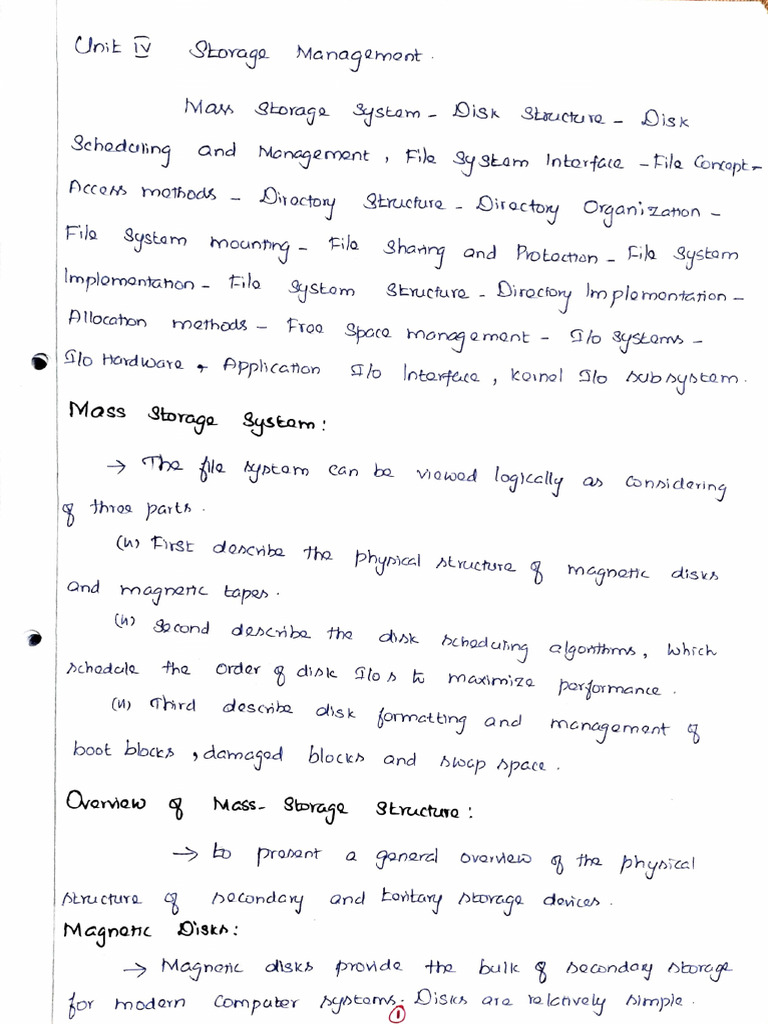 Unit IV Storage Management.
Mass Storage System - Disk Structure - Disk
Scheduling and Management, File System Interface - File Concept -
Access methods - Directory Structure - Directory Organization -
File System mounting - File Sharing and Protection - File System
Implementation - File System Structure - Directory Implementation -
Allocation methods - Free Space management - I/o Systems -
I/o Hardware, Application I/o Interface, Kernel I/o subsystem.
Mass Storage System:
→ The file system can be viewed logically as considering
of three parts.
(u) First describe the physical structure of magnetic disks
and magnetic tapes.
(u) Second describe the disk scheduling algorithms, which
schedule the order of disk I/os to maximize performance.
(u) Third describe disk formatting and management of
boot blocks, damaged blocks and swap space.
Overview of Mass-Storage Structure:
→ to present a general overview of the physical
structure of secondary and teritary storage devices.
Magnetic Disks:
→ Magnetic disks provide the bulk of secondary storage
for modern computer systems. Disks are relctively simple.
1